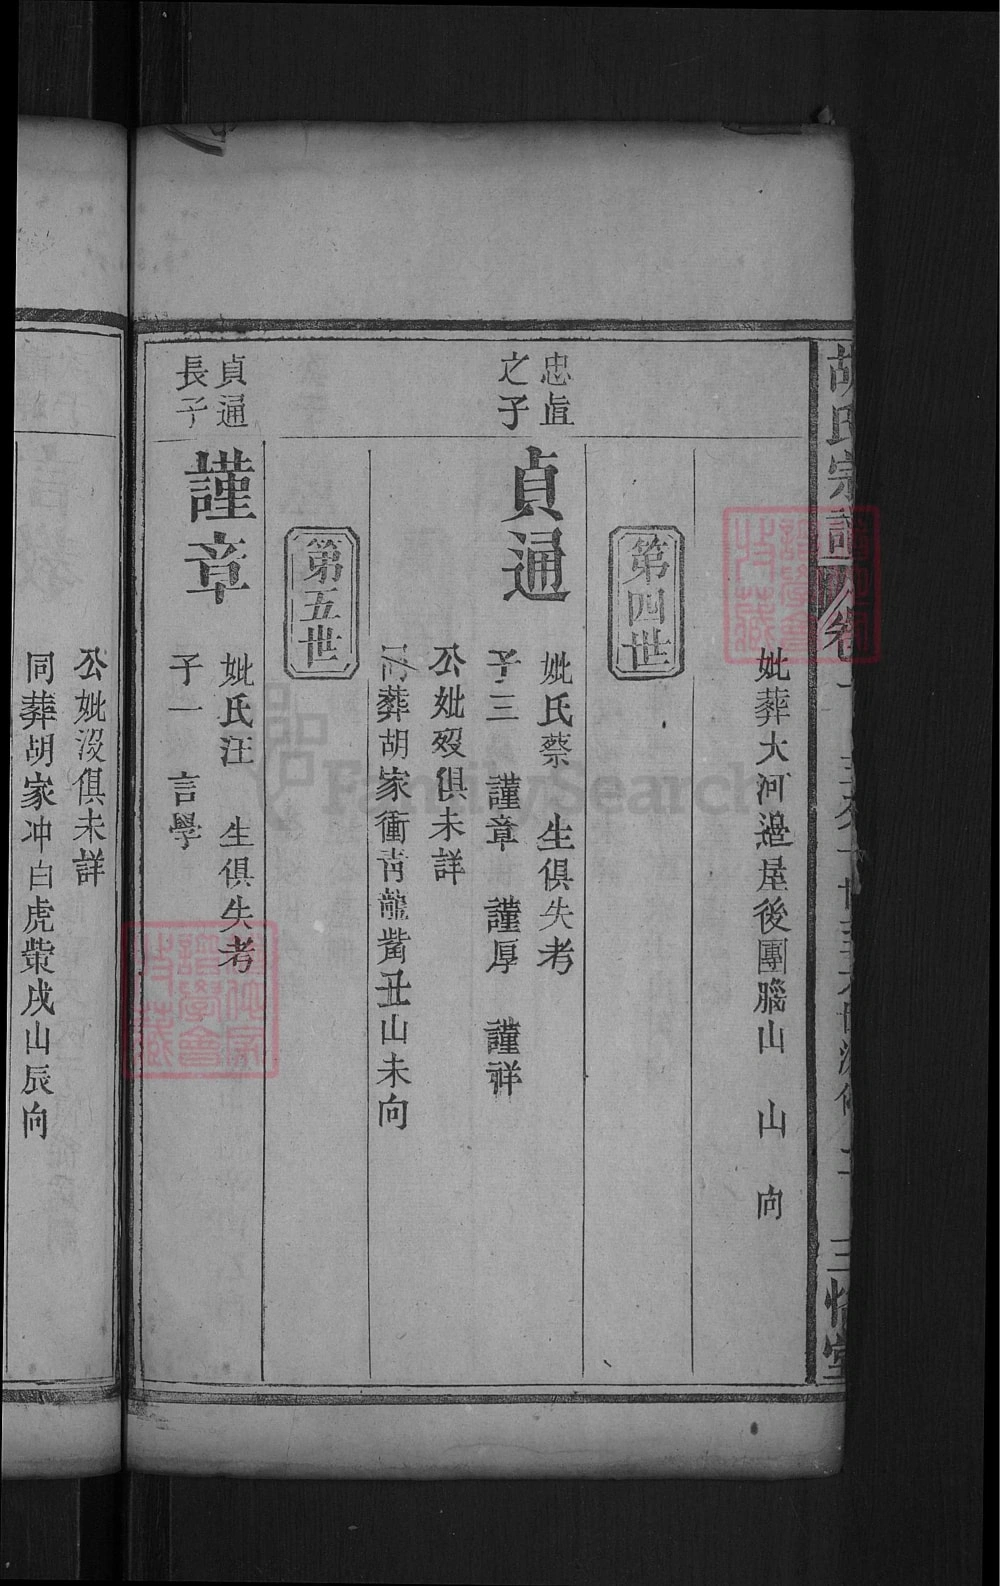 胡氏宗譜
妣葬大河邉屋後團腦山　山　向
第四世
忠眞
之子
貞通
妣氏蔡　生俱失考
子三　謹章　謹厚　謹祥
公妣歿俱未詳
同葬胡家衝靑龍嘴丑山未向
第五世
貞通
長子
謹章
妣氏汪　生俱失考
子一　言學
公妣沒俱未詳
同葬胡家冲白虎
戌山辰向
FamilySearch